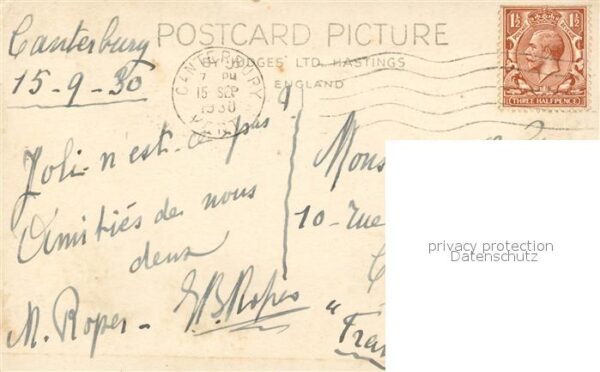 POSTCARD PICTURE
BY JUDGES' LTD. HASTINGS
ENGLAND
CANTERBURY
7 PM
15 SEP
1930
1½ 1½
THREE HALFPENCE
Canterbury
15-9-30
Joli n'est-ce pas?
Amitiés de nous
deux
M. Roper - Roper
Mons
10-rue
"
Fran
privacy protection
Datenschutz